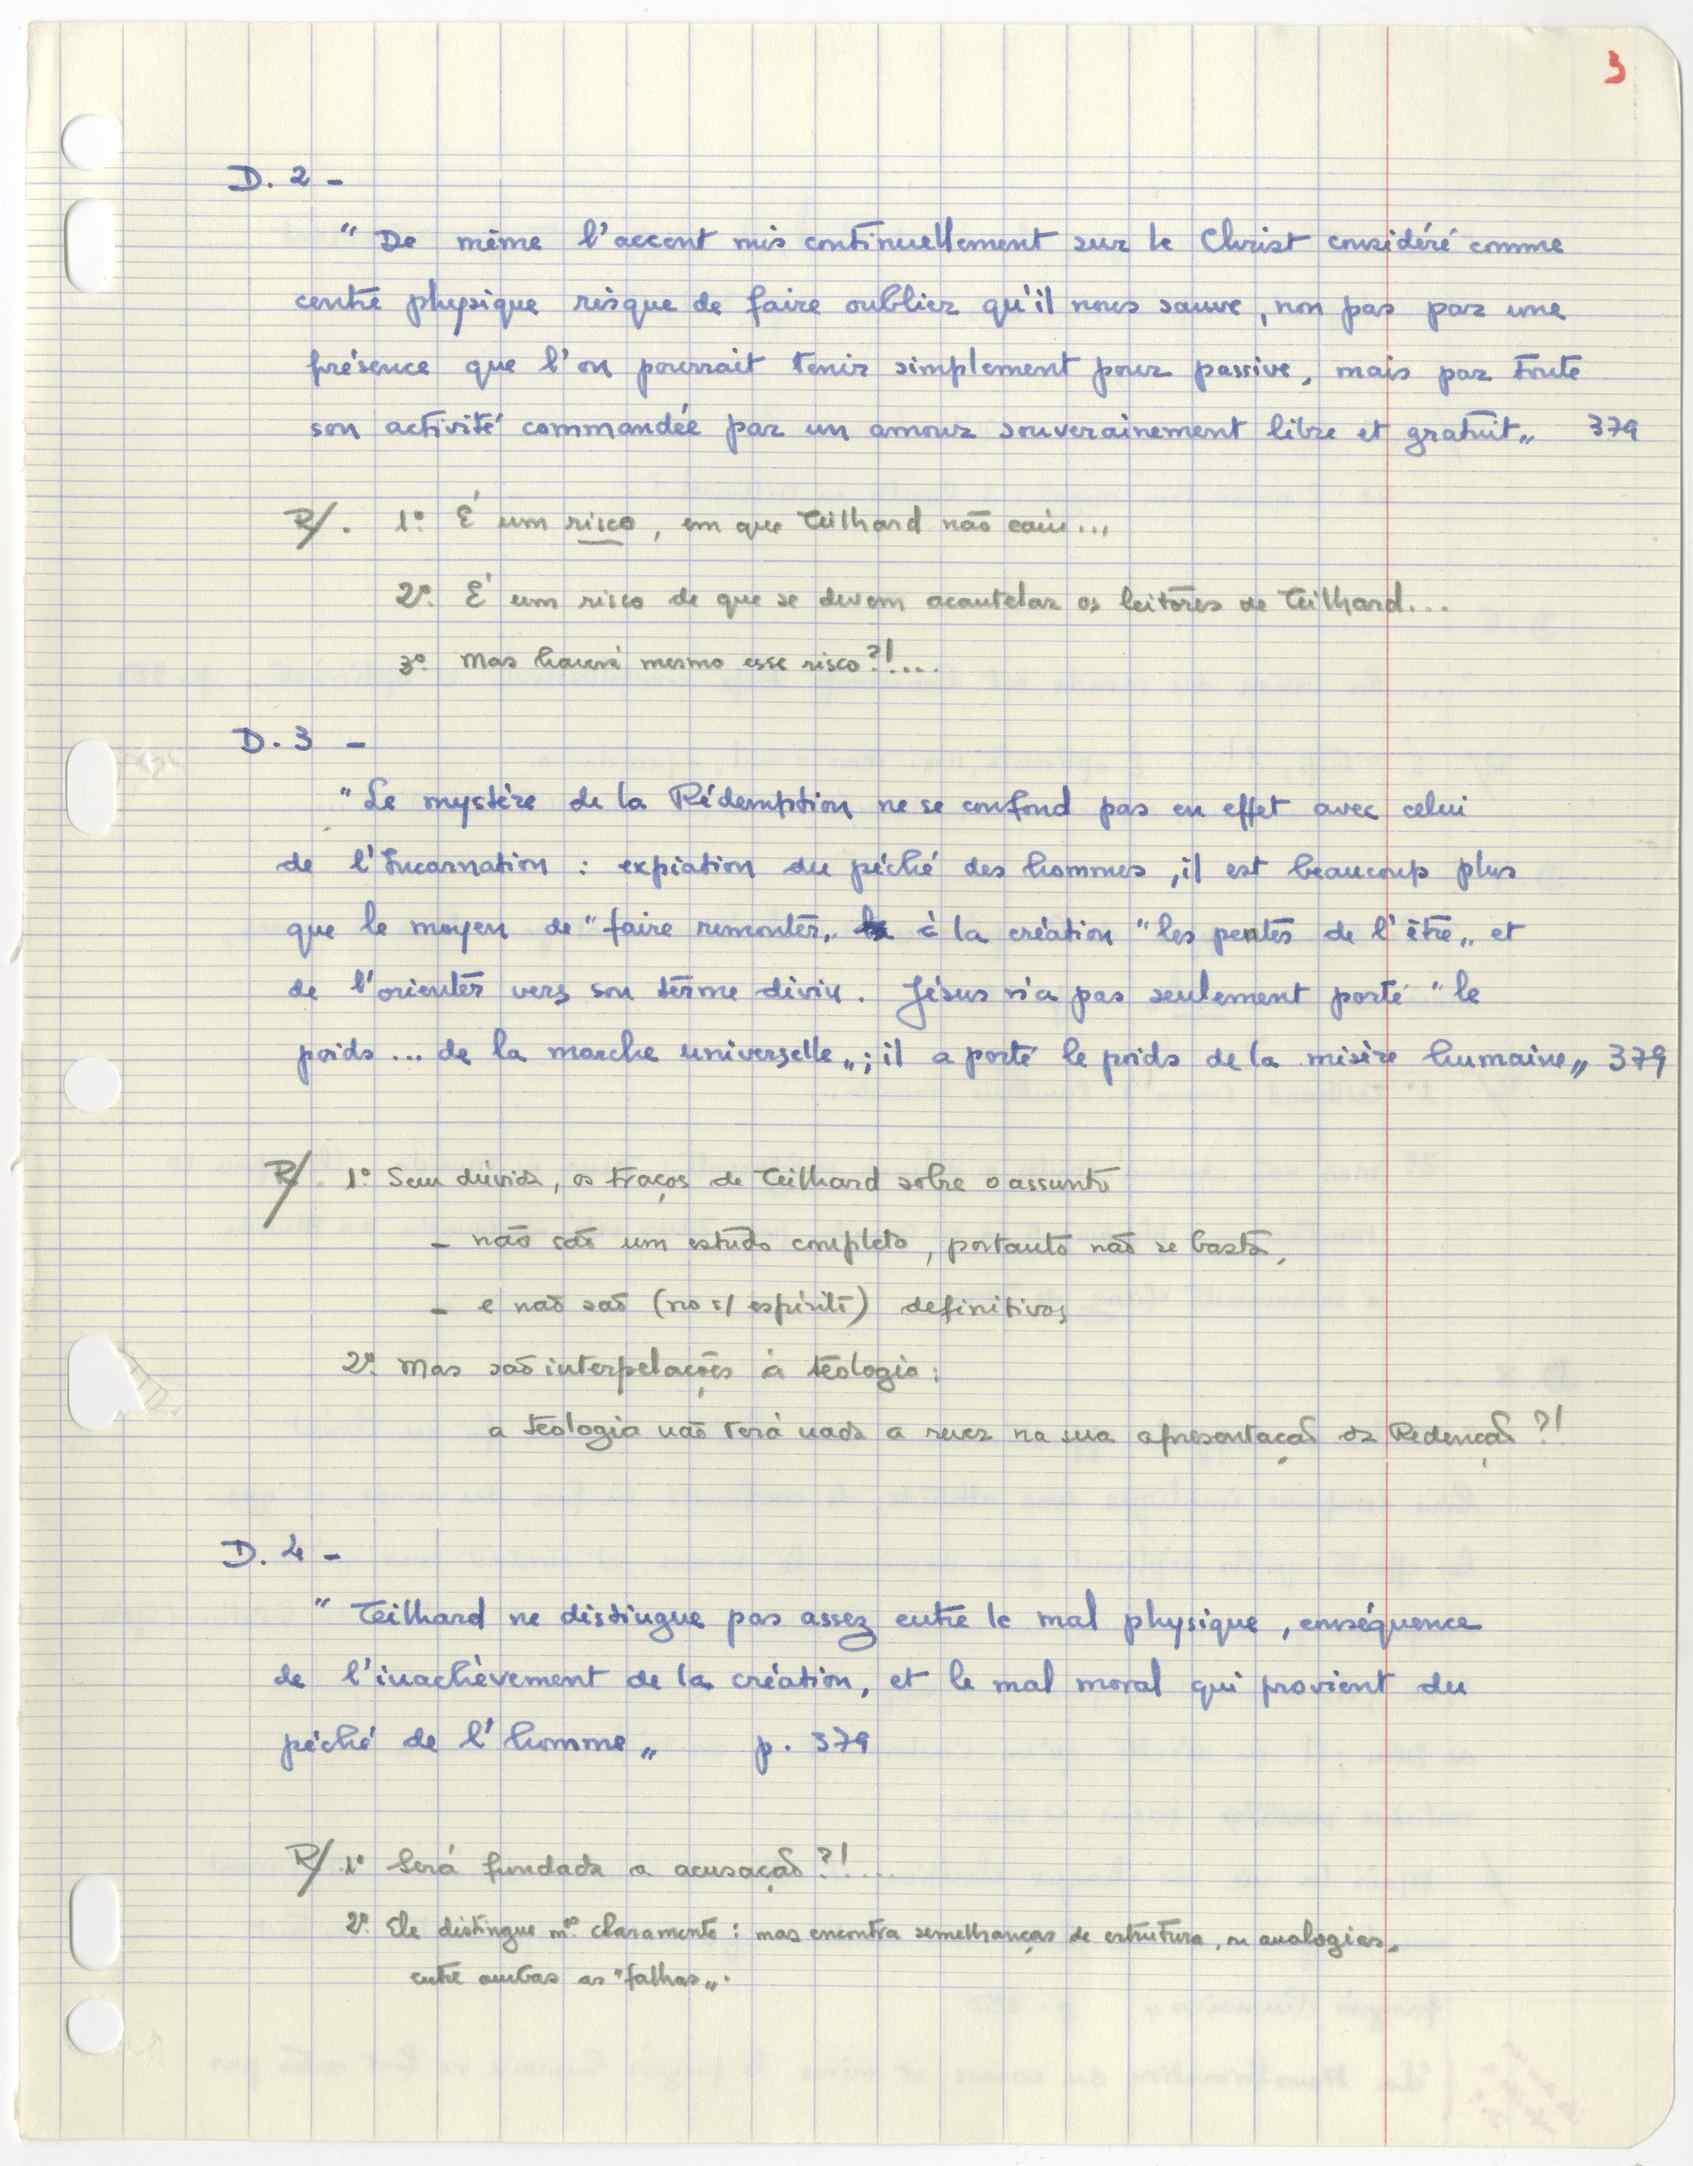 3
D. 2 -
" De même l'accent mis continuellement sur le Christ considéré comme
centre physique risque de faire oublier qu'il nous sauve, non pas par une
présence que l'on pourrait tenir simplement pour passive, mais par toute
son activité commandée par un amour souverainement libre et gratuit „ 379
R/. 1º É um risco, em que Teilhard não caiu...
2º. É um risco de que se devem acautelar os leitores de Teilhard...
3º. Mas haverá mesmo esse risco?!....
D. 3 -
" Le mystère de la Rédemption ne se confond pas en effet avec celui
de l'Incarnation : expiation du péché des hommes, il est beaucoup plus
que le moyen de " faire remonter „ à la création " les pentes de l'être „ et
de l'orienter vers son terme divin. Jésus n'a pas seulement porté " le
poids ... de la marche universelle „ ; il a porté le poids de la misère humaine „ 379
R/. 1º Sem dúvida, os traços de Teilhard sobre o assunto
- não são um estudo completo, portanto não se basta,
- e não são (no s/ espírito) definitivos
2º. Mas são interpelações à teologia:
a teologia não terá nada a rever na sua apresentação da Redenção ?!
D. 4 -
" Teilhard ne distingue pas assez entre le mal physique, conséquence
de l'inachèvement de la création, et le mal moral qui provient du
péché de l'homme „ p. 379
R/ 1º Será fundada a acusação ?!....
2º. Ele distingue mto. claramente : mas encontra semelhanças de estrutura, ou analogias,
entre ambas as " falhas „.